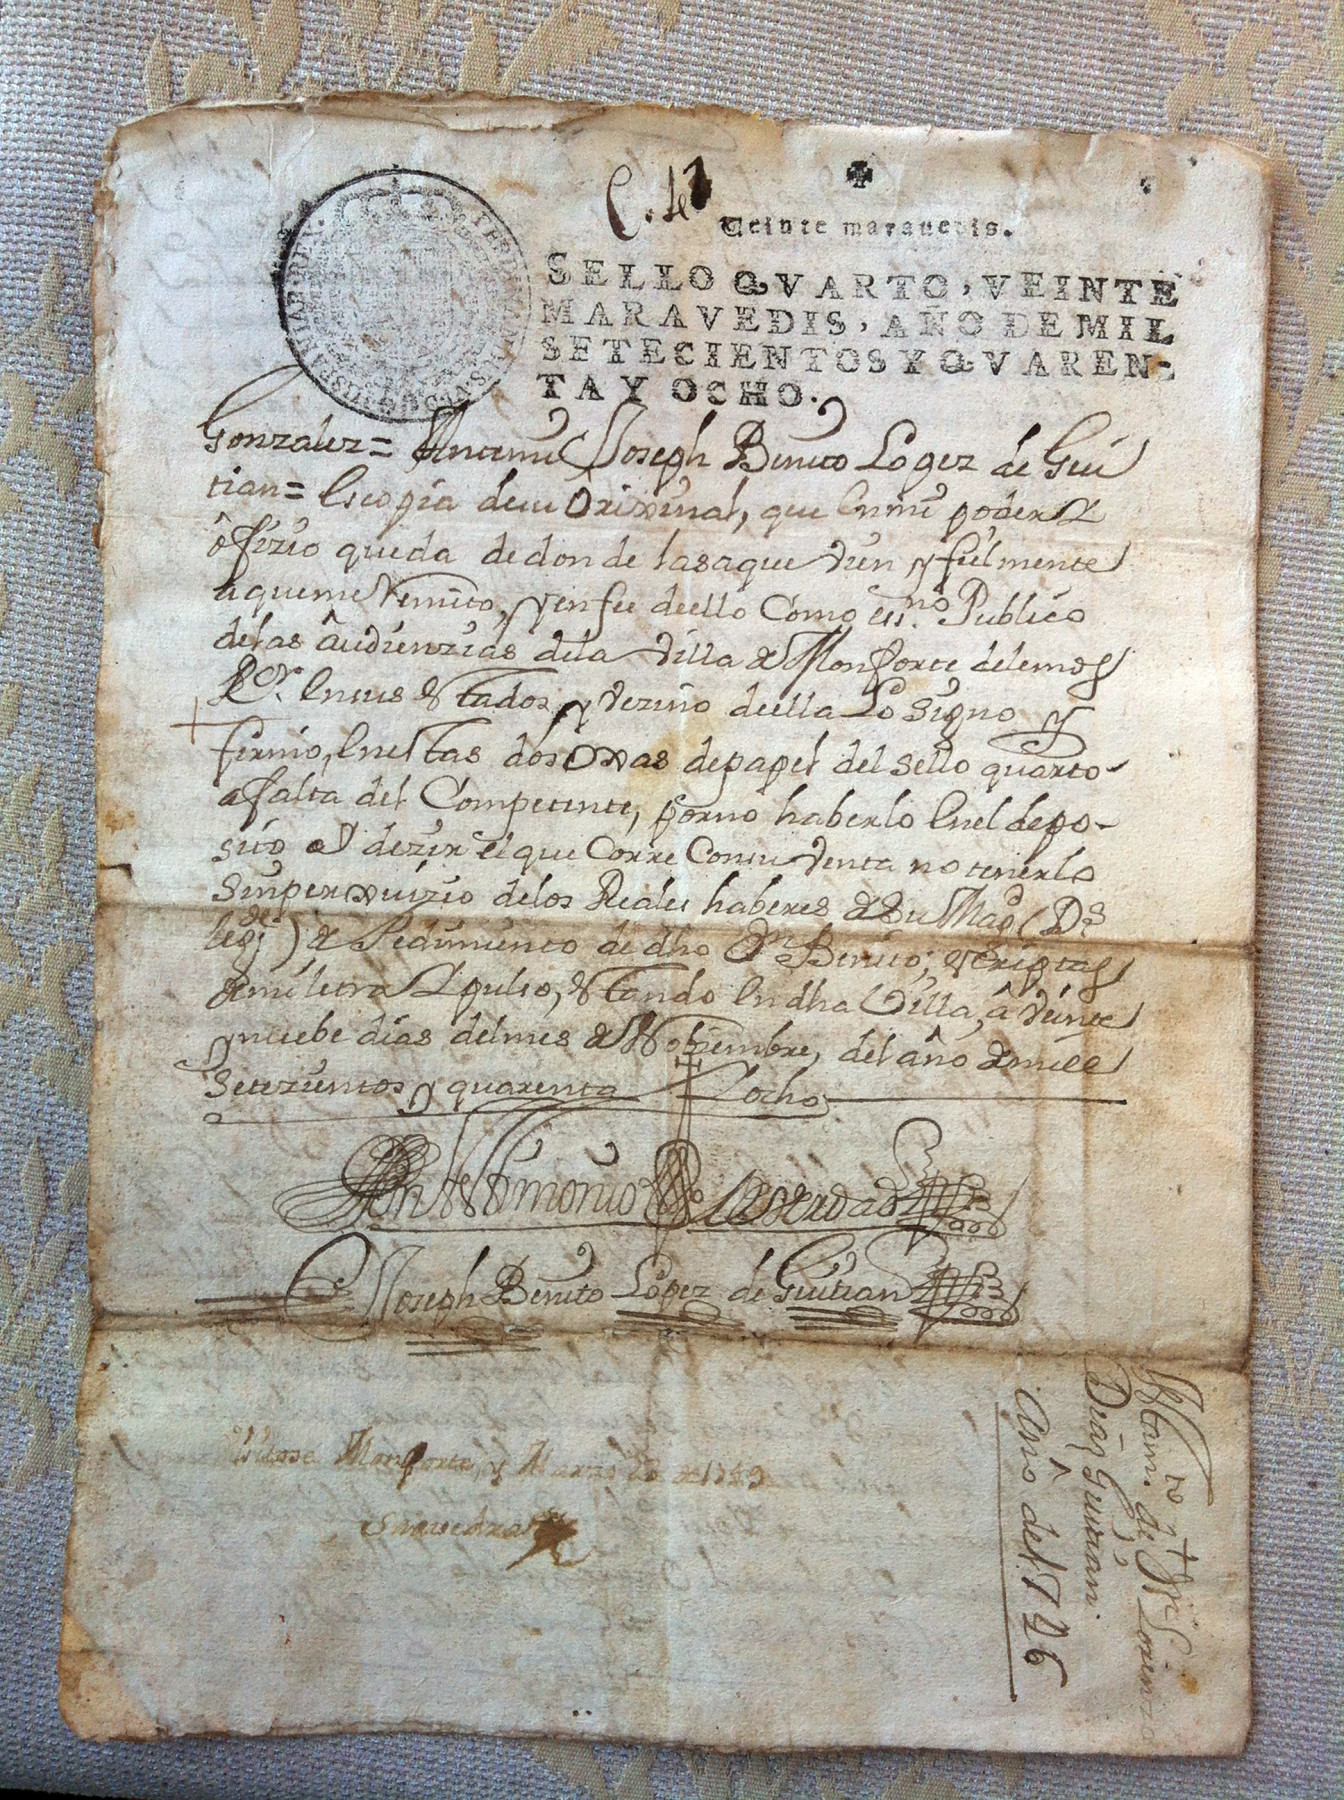 Veinte maravedis.
SELLO QVARTO, VEINTE
MARAVEDIS, AÑO DE MIL
SETECIENTOS Y QVAREN-
TA Y OCHO.
Gonzalez = Antemi Joseph Benito Lopez de Gui
tian = Es copia de su Orixinal, que en mi poder y
ofizio queda de donde la saque vien y fielmente
a que me remito, y en fee de ello Como es.no Publico
de las audienzias de la villa de Monforte de lemos
en sus estados, y vezino de ella Lo signo y
firmo, en estas dos oxas de papel del sello quarto
a falta del Competente, por no haberlo en el depo-
sito y dezir el que Corre Con su venta no tenerlo
sin perxuizio de los Reales haberes de su Magd (Ds
le gde) de Pedimento de dho Dn Benito, escriptas
de mi letra y pulso, estando en dha Villa, â veinte
y nuebe dias del mes de Nobiembre, del año de mill
setezientos y quarenta y ocho
En testimonio de verdad
Joseph Benito Lopez de Guitian
Monforte, y Marzo de 1749
Saavedra
de Dn Lorenzo
Diaz Guitian.
Año de 1746